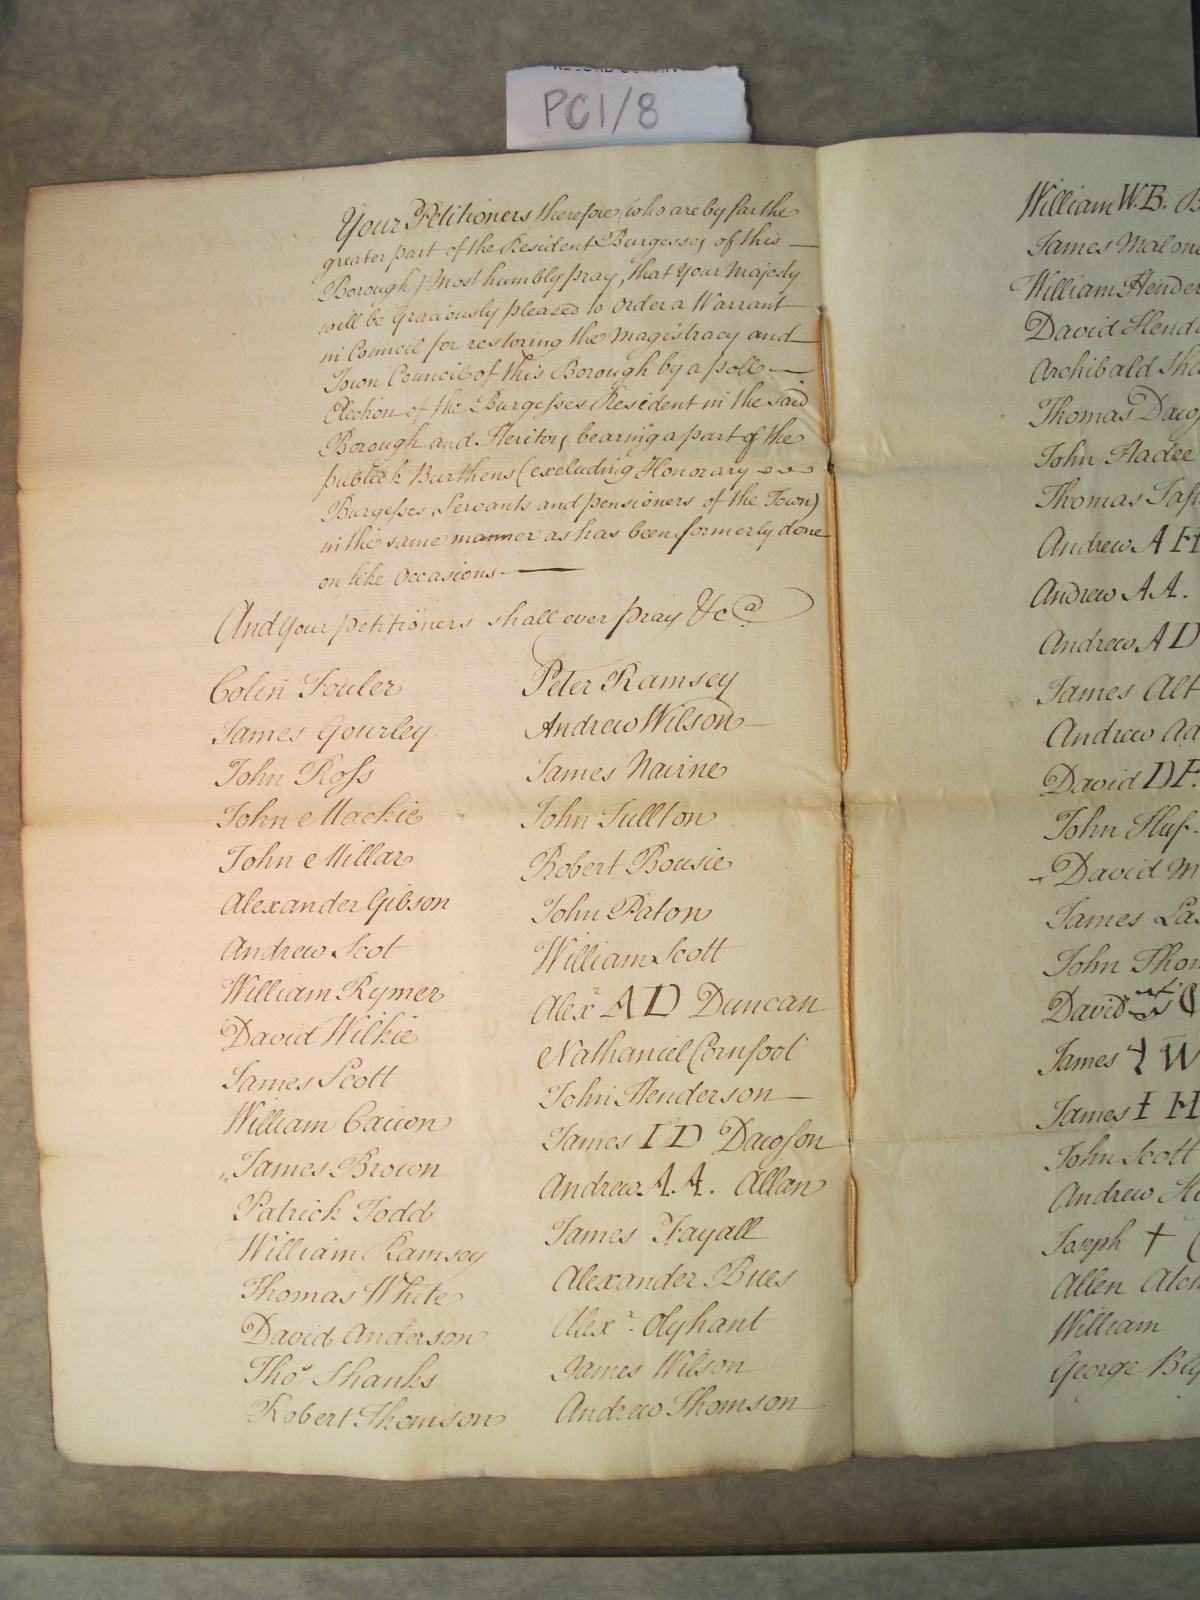 PC1/8
Your Petitioners therefore (who are by far the
greater part of the Resident Burgesses of this
Borough) Most humbly pray, that Your Majesty
will be Graciously pleased to Order a Warrant
in Council for restoring the Magistracy and
Town Council of this Borough by a poll
Election of the Burgesses Resident in the said
Borough and Heritors bearing a part of the
publick Burthens (excluding Honorary
Burgesses, Servants and pensioners of the Town)
in the same manner as has been formerly done
on like Occasions
And Your petitioners shall ever pray &c
Colin Fouler
James Gourley
John Ross
John Mackie
John Millar
Alexander Gibson
Andrew Scot
William Rymer
David Wilkie
James Scott
William
James Brown
Patrick Todd
William Ramsey
Thomas White
David Anderson
Tho.s Shanks
Robert Thomson
Peter Ramsey
Andrew Wilson
James Nairne
John Fullton
Robert Bousie
John Paton
William Scott
Alex.r A D Duncan
Nathaniel Cornfoot
John Henderson
James I D Dawson
Andrew A. A. Allan
James Fayall
Alexander Bues
Alex.r Olyphant
James Wilson
Andrew Thomson
William W.B.
James
William
David
Archibald
Thomas
John
Thomas
Andrew A H
Andrew A A.
Andrew A D
James
Andrew
David D F.
John
David
James
John
David
James W
James I H
John Scott
Andrew
Joseph +
Allen
William
George